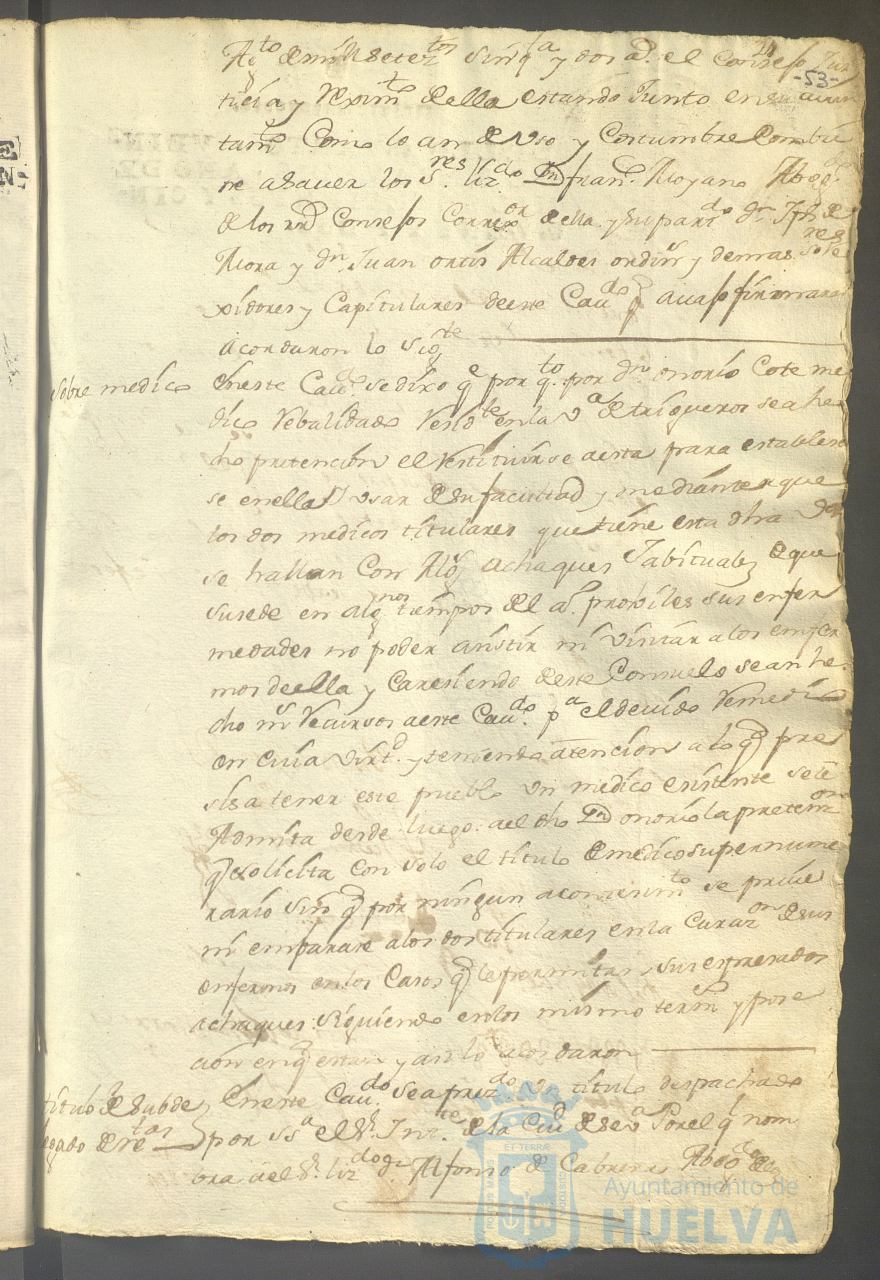 -53-
Ag.to de mill setez.tos sinq.ta y dos a.s el Consejo Jus
ticia y Rexim.to de ella estando Junto en su aiun
tam.to Como lo an de uso y Costumbre Combie
ne a saver los S.res Liz.do Dn fran.co Moyano Abog.do
de los rr.s Consejos Correx.or de ella y su part.do dn Jph de
Mora y dn Juan ortis Alcaldes ordin.s y demas S.res Re
xidores y Capitulares de este Cau.do q avajo firmaran
acordaron lo sig.te
Sobre medico
En este Cau.do se dixo q.e por q.to por dn onorio Cote me
dico Rebalidado Resid.te en la v.a de trigueros se a he
cho pretencion el Restituirse a esta para establecer
se en ella y usar de su facultad y mediante a que
los dos medicos titulares que tiene esta dha v.a
se hallan Con Alg.s achaques Habituales de que
susede en alg.nos tiempos del a.o prohiviles sus enfer
medades no poder asistir ni visitar a los enfer
mos de ella y Caresiendo de este Consuelo se an he
cho m.s Recursos a este Cau.do p.a el devido Remedio
en cuia virt.d y teniendo atencion a lo q.e pre
sisa tener este pueblo un medico existente se le
Admita desde luego a el dho Dn onorio la pretenz.on
q solicita con solo el titulo de medico supernume
rario sin q por ningun acontesim.to se prive
ni embarase a los dos titulares en la Curaz.on de sus
enfermos en los Casos q le permitan sus expresados
achaques siguiendo en los mismo term.s y pose
cion en q estan y asi lo acordaron
titulo de subde
legado de rentas
En este Cau.do se a prez.do un titulo despachado
por Ss.a el Sr. Int.te de la Ciu.d de Sev.a Por el q nom
bra a el Sr. Liz.do dn Alfonso de Cabrera Abog.do de los
Ayuntamiento de
HUELVA